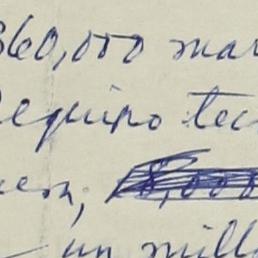 360,000 mar
equipo tec
un mill